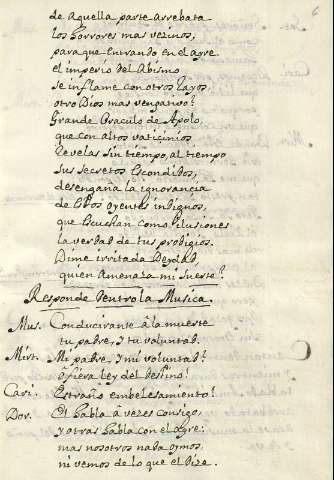 6
de aquella parte arrebata
los horrores mas vezinos,
para que entrando en el ayre
el imperio del Abismo
se inflame con otros rayos,
otro Dios mas vengativo?
Grande Oraculo de Apolo,
que con altos vaticinios
Revelas sin tiempo, al tiempo
sus secretos escondidos,
desengaña la ignorancia
de essos oyentes indignos,
que escuchan como ilusiones
la verdad de tus prodigios.
Dime irritada Deydad
quien Amenaza mi suerte?
Responde dentro la Musica.
Mus. Conduciránte â la muerte
tu padre, y tu voluntad.
Mirt. Mi padre, y mi voluntad?
ô fiera ley del destino!
Cari. Estraño embelesamiento!
Dor. El habla â vezes consigo,
y otras habla con el ayre:
mas nosotros nada oymos,
ni vemos de lo que el dize.